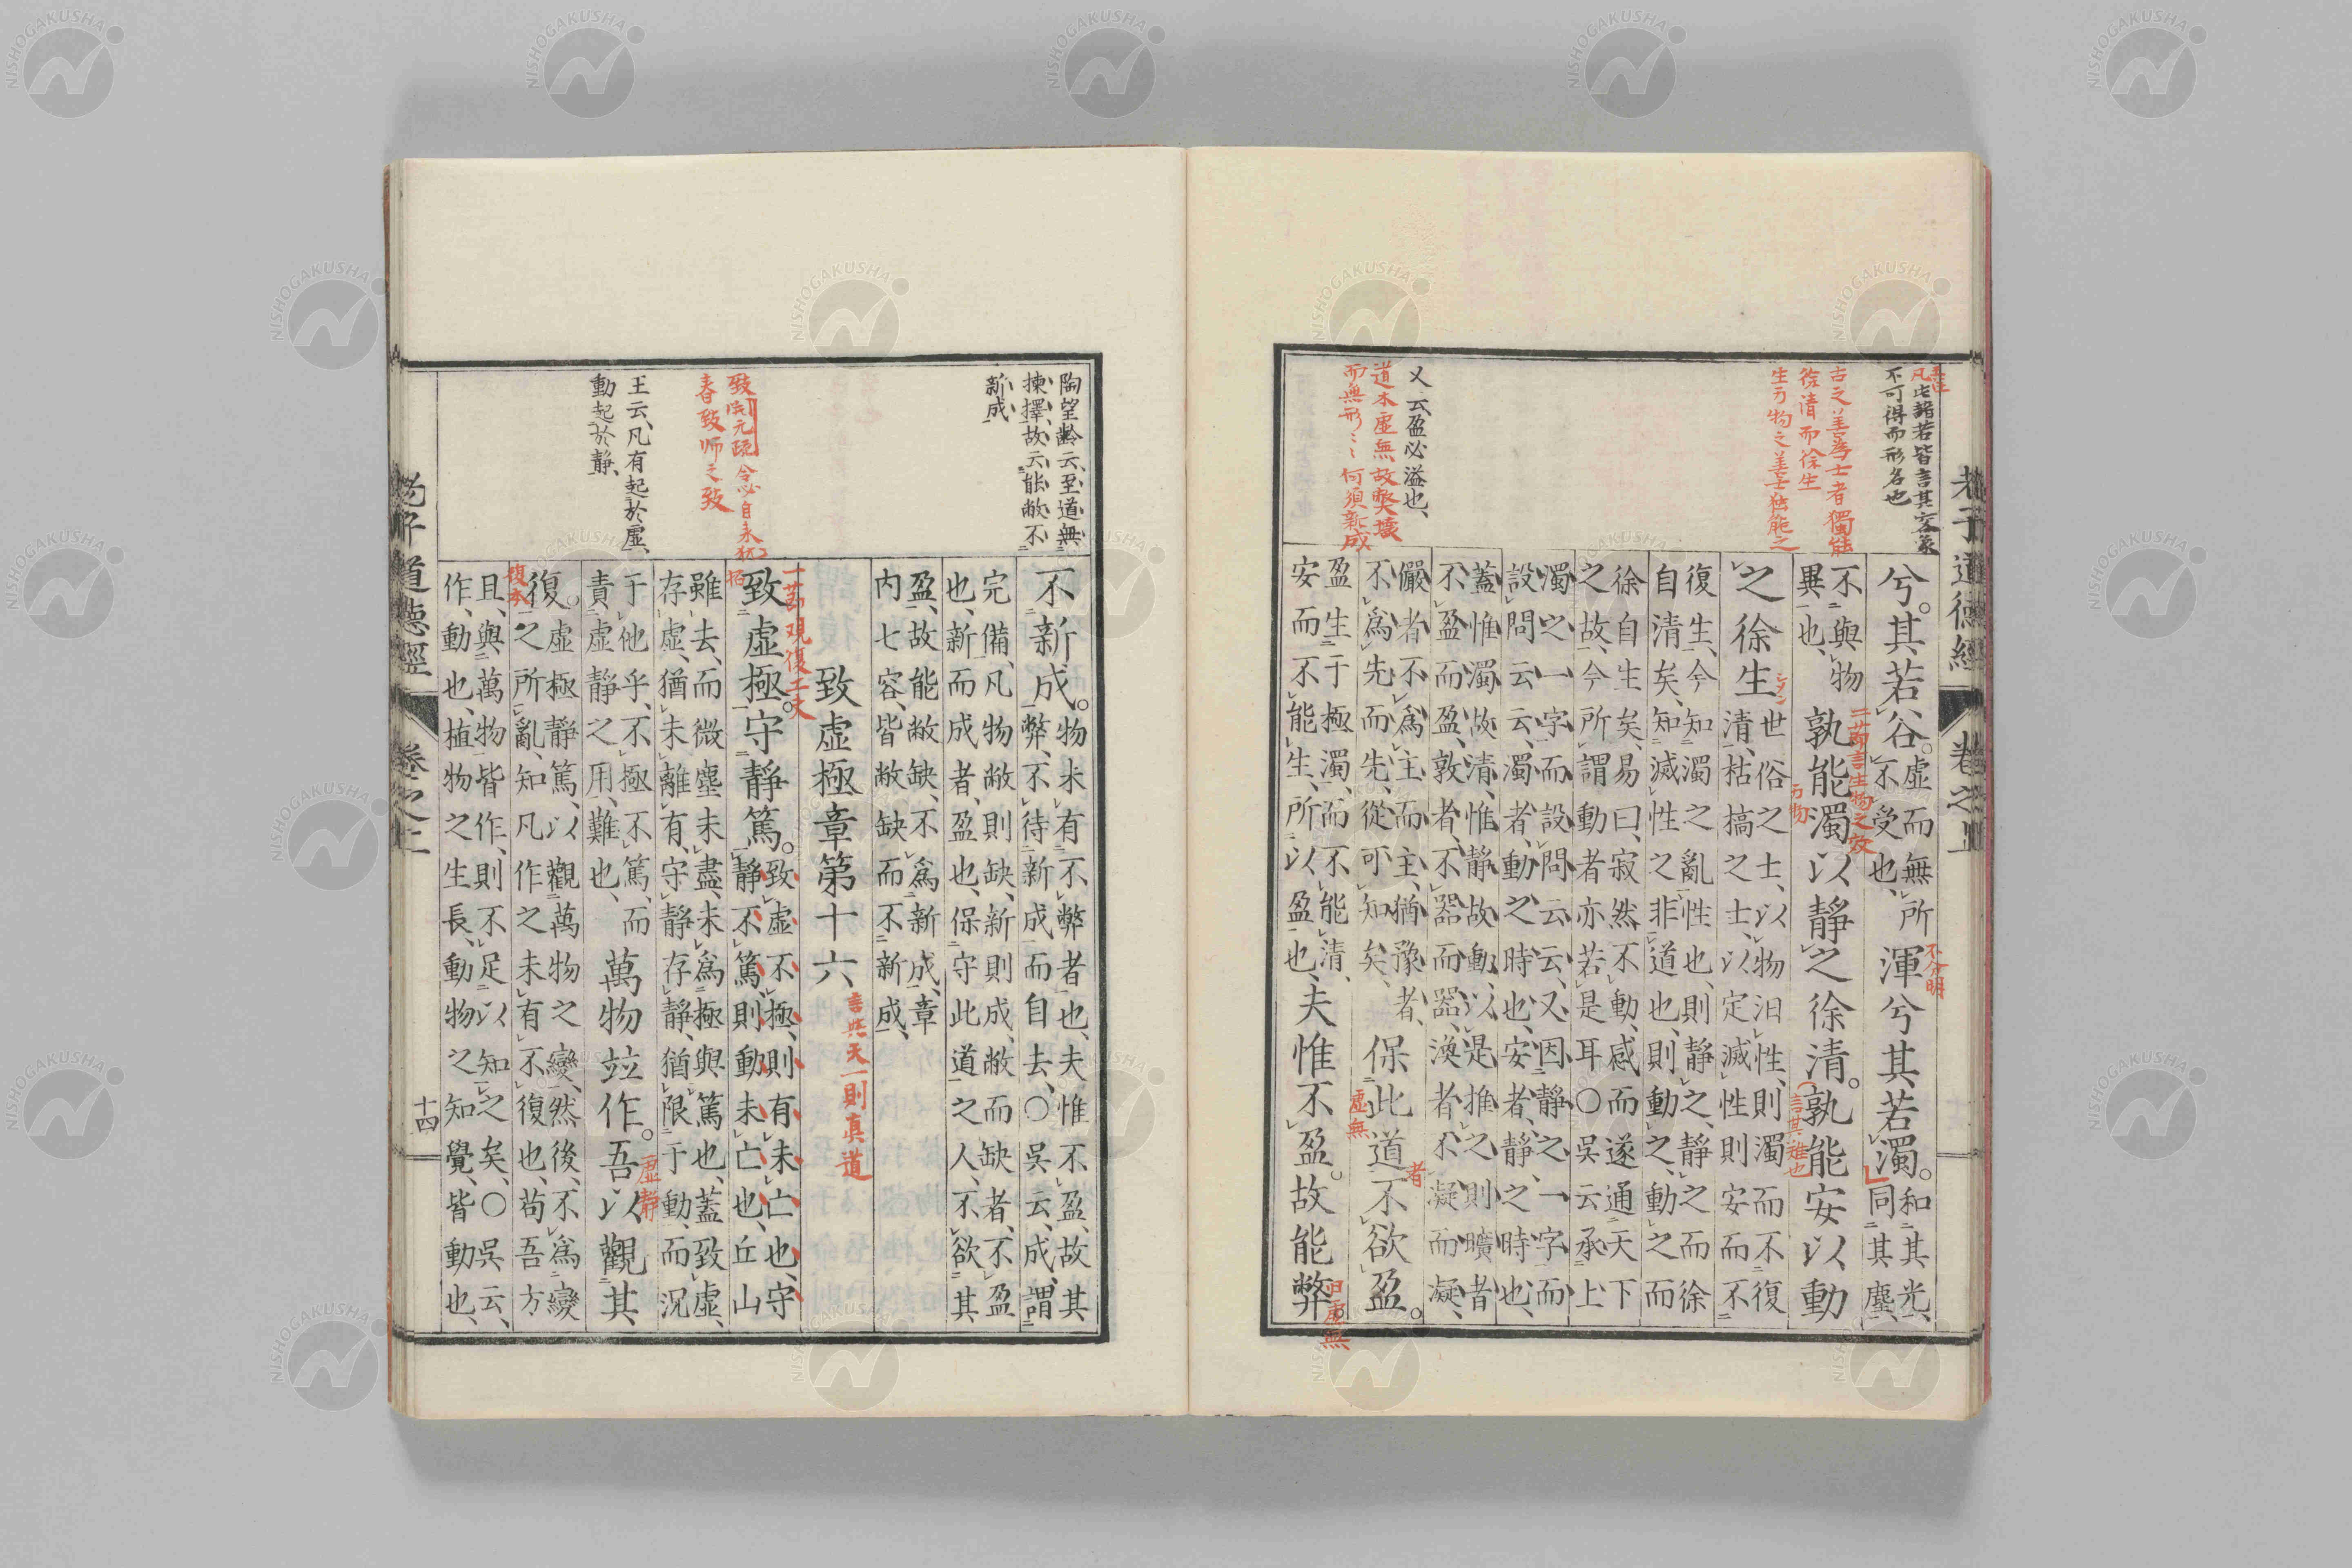 老子道德經 卷之上
凡此諸若皆言其容象
不可得而形名也
古之善為士者獨能
徐清而徐生
生万物之善士独能之
又云盈必溢也、
道本虛無故弊壞
而無形〻〻何須新成
兮。其若谷。
虛而無所
不受也、
渾兮其若濁。
不分明
和其光、
同其塵、
不與物
異也、
孰能濁以靜之徐清。孰能安以動
二節言生物之安
万物
言其難也
之徐生
世俗之士、以物汨性、則濁而不復
清、枯槁之士、以定滅性則安而不
復生、今知濁之亂性也、則靜之、靜之而徐
自清矣、知滅性之非道也、則動之、動之而
徐自生矣、易曰、寂然不動、感而遂通天下
之故、今所謂動者亦若是耳○吳云承上
濁之一字、而設問云云、又因靜之一字而
設問云云、濁者、動之時也、安者、靜之時也、
蓋惟濁故清、惟靜故動、以是推之、則曠者
不盈而盈、敦者、不器而器、渙者不凝而凝、
儼者不爲主、而主、猶豫者、
不爲先而先、從可知矣、
保此道不欲盈。
虛無
者
盈生于極濁、而不能清、
安而不能生、所以盈也、
夫惟不盈。故能弊
旧虛無
陶望齡云、至道無
揀擇、故云能敝不
新成、
致開元疏令必自来
春致师之致
王云、凡有起於虛、
動起於靜、
不新成。
物未有不弊者也、夫惟不盈、故其
弊、不待新成而自去、○吳云、成、謂
完備、凡物敝則缺、新則成、敝而缺者、不盈
也、新而成者、盈也、保守此道之人、不欲其
盈、故能敝缺、不爲新成、章
内七容、皆敝缺而不新成、
致虛極章第十六
言與天一則真道
一節觀復二文
致虛極。守靜篤。
致虛不極、則有未亡也、守
靜不篤、則動未亡也、丘山
雖去、而微塵未盡、未爲極與篤也、蓋致虛、
存虛、猶未離有、守靜存靜、猶限于動、而況
于他乎、不極不篤、而
責虛靜之用、難也、
萬物竝作。吾以觀其
虛靜
復。
復本
虛極靜篤、以觀萬物之變、然後、不爲變
之所亂、知凡作之未有不復也、苟吾方
且、與萬物皆作、則不足以知之矣、○吳云、
作、動也、植物之生長、動物之知覺、皆動也、
道德經 卷之上
十四